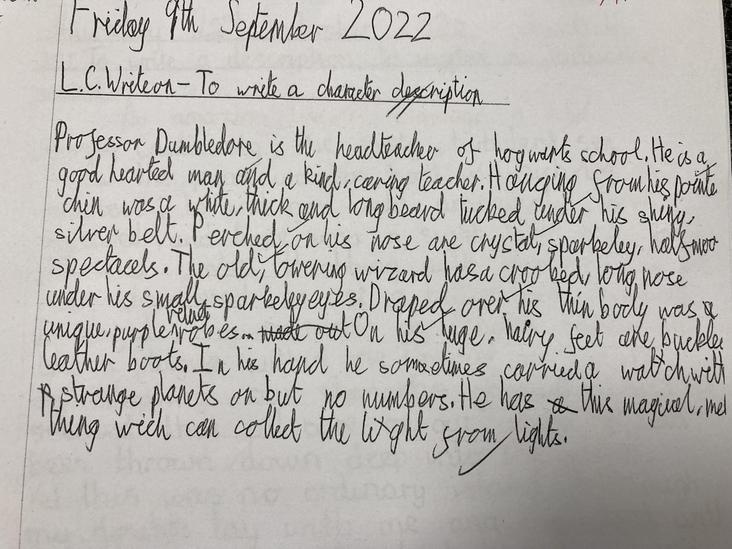 Friday 9th September 2022
L.C. Writeon - To write a character description
Professor Dumbledore is the headteacher of hogwarts school. He is a
good hearted man and a kind, caring teacher. Hanging from his pointe
chin was a white, thick and long beard tucked under his shiny,
silver belt. Perched on his nose are crystal, sparkeley, half-moo
spectacels. The old, towering wizard has a crooked, long nose
under his small, sparkeley eyes. Draped over his thin body was a
unique, purple velvet robes. made out On his huge, hairy feet are buckle
leather boots. In his hand he somtimes carried a watch with
strange planets on but no numbers. He has a this magical, met
thing wich can collect the light from lights.